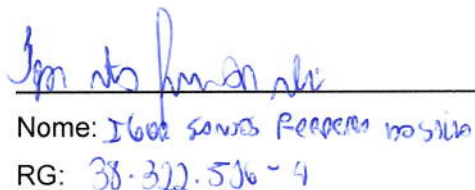 Nome: IGOR SANTOS FERREIRA DA SILVA
RG: 38.322.536-4